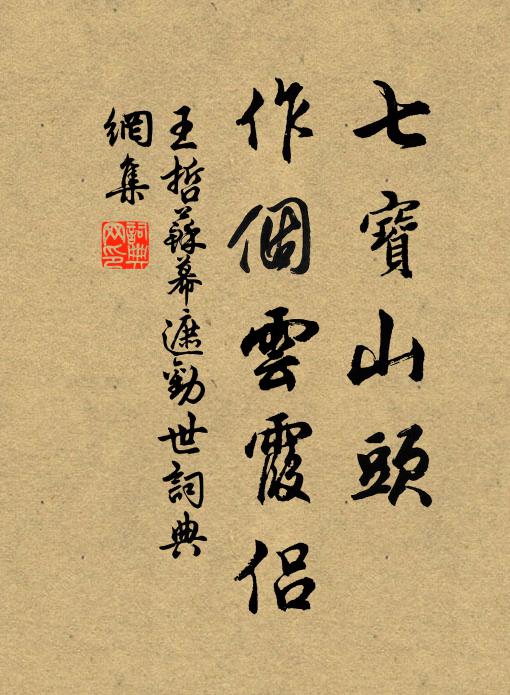 七寶山頭
作個雲霞侶
王哲蘇幕遮勸世詞典
網集
詞典
网印